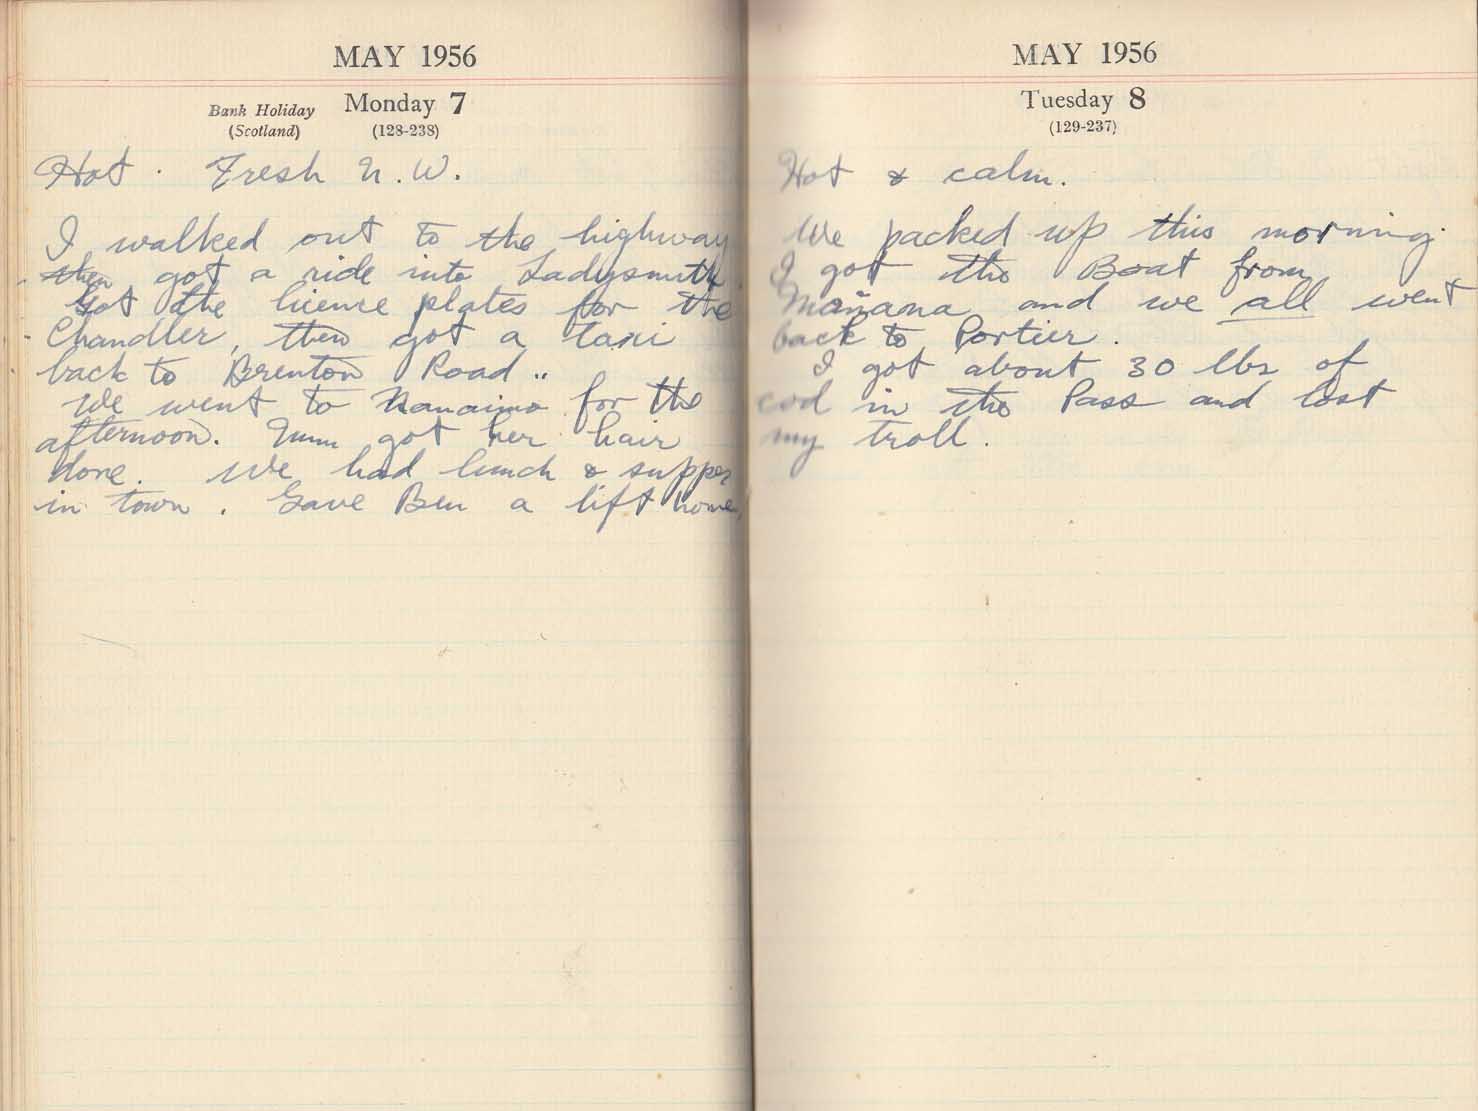 MAY 1956
Bank Holiday
(Scotland)
Monday 7
(128-238)
Hot. Fresh N.W.
I walked out to the highway
then got a ride into Ladysmith.
Got the licence plates for the
Chandler, then got a taxi
back to Brenton Road..
We went to Nanaimo for the
afternoon. Mum got her hair
done. We had lunch & supper
in town. Gave Ben a lift home,
MAY 1956
Tuesday 8
(129-237)
Hot & calm.
We packed up this morning.
I got the Boat from
Mañana and we all went
back to Portier.
I got about 30 lbs of
cod in the Pass and lost
my troll.